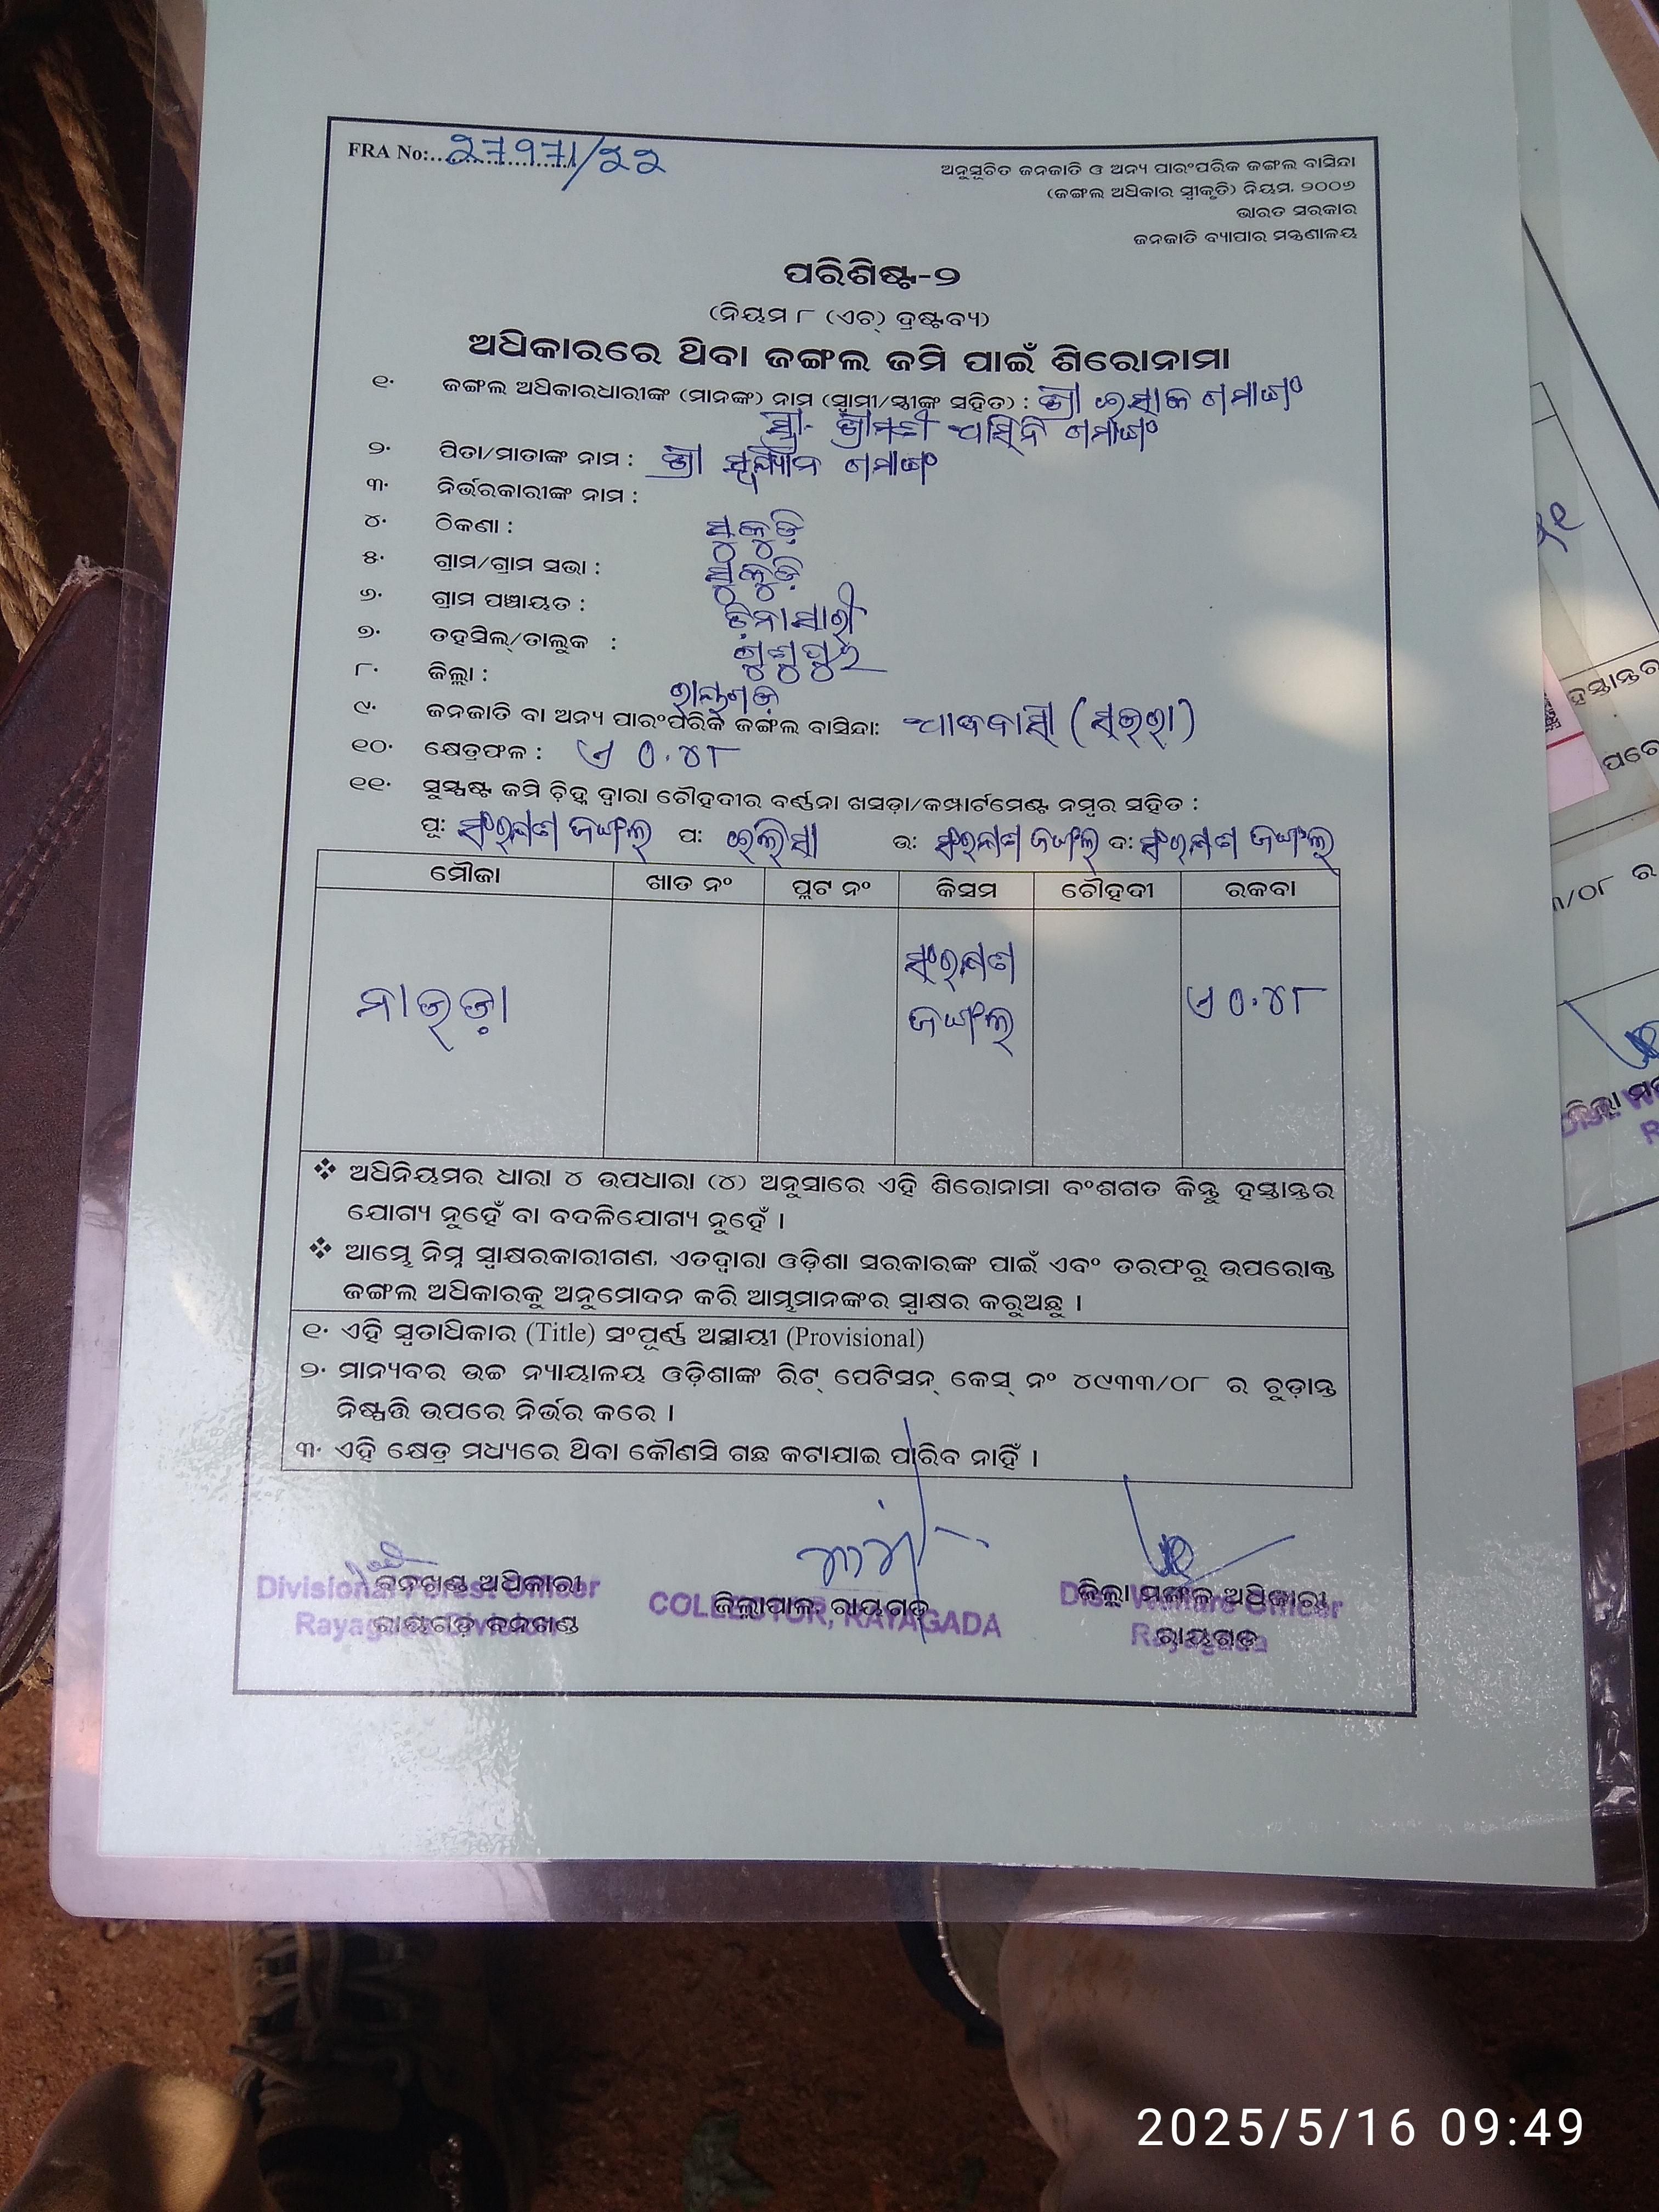 FRA No:
ଅନୁସୂଚିତ ଜନଜାତି ଓ ଅନ୍ୟ ପାରଂପରିକ ଜଙ୍ଗଲ ବାସିନ୍ଦା
(ଜଙ୍ଗଲ ଅଧିକାର ସ୍ୱୀକୃତି) ନିୟମ, ୨୦୦୬
ଭାରତ ସରକାର
ଜନଜାତି ବ୍ୟାପାର ମନ୍ତ୍ରଣାଳୟ
ପରିଶିଷ୍ଟ-୨
(ନିୟମ ୮ (ଏଚ୍) ଦ୍ରଷ୍ଟବ୍ୟ)
ଅଧିକାରରେ ଥିବା ଜଙ୍ଗଲ ଜମି ପାଇଁ ଶିରୋନାମା
୧. ଜଙ୍ଗଲ ଅଧିକାରଧାରୀଙ୍କ (ମାନଙ୍କ) ନାମ (ସ୍ୱାମୀ/ସ୍ତ୍ରୀଙ୍କ ସହିତ) : ଶ୍ରୀ ଇସାକ ଗମାଙ୍ଗ
ସ୍ତ୍ରୀ- ଶ୍ରୀମତୀ ଗମାଙ୍ଗ
୨. ପିତା/ମାତାଙ୍କ ନାମ : ଶ୍ରୀ ଗମାଙ୍ଗ
୩. ନିର୍ଭରକାରୀଙ୍କ ନାମ :
୪. ଠିକଣା : ସୁକୁଡ଼ି
୫. ଗ୍ରାମ/ଗ୍ରାମ ସଭା : ସୁକୁଡ଼ି
୬. ଗ୍ରାମ ପଞ୍ଚାୟତ : ଚିନାସାରୀ
୭. ତହସିଲ୍/ତାଲୁକ : ଗୁଣୁପୁର
୮. ଜିଲ୍ଲା : ରାୟଗଡ଼
୯. ଜନଜାତି ବା ଅନ୍ୟ ପାରଂପରିକ ଜଙ୍ଗଲ ବାସିନ୍ଦା: ଆଦିବାସୀ (ସଉରା)
୧୦. କ୍ଷେତ୍ରଫଳ : ଏ ୦.୪୮
୧୧. ସୁସ୍ପଷ୍ଟ ଜମି ଚ଼ିହ୍ନ ଦ୍ୱାରା ଚୌହଦୀର ବର୍ଣ୍ଣନା ଖସଡ଼ା/କମ୍ପାର୍ଟମେଣ୍ଟ ନମ୍ବର ସହିତ :
ପୂ: ସଂରକ୍ଷଣ ଜଙ୍ଗଲ ପ: ଉ: ସଂରକ୍ଷଣ ଜଙ୍ଗଲ ଦ: ସଂରକ୍ଷଣ ଜଙ୍ଗଲ
ମୌଜା ଖାତ ନଂ ପ୍ଲଟ ନଂ କିସମ ଚୌହଦୀ ରକବା
ସଂରକ୍ଷଣ
ନାଉଡ଼ା ଜଙ୍ଗଲ ଏ ୦.୪୮
❖ ଅଧିନିୟମର ଧାରା ୪ ଉପଧାରା (୪) ଅନୁସାରେ ଏହି ଶିରୋନାମା ବଂଶଗତ କିନ୍ତୁ ହସ୍ତାନ୍ତର
ଯୋଗ୍ୟ ନୁହେଁ ବା ବଦଳିଯୋଗ୍ୟ ନୁହେଁ ।
❖ ଆମ୍ଭେ ନିମ୍ନ ସ୍ୱାକ୍ଷରକାରୀଗଣ, ଏତଦ୍ୱାରା ଓଡ଼ିଶା ସରକାରଙ୍କ ପାଇଁ ଏବଂ ତରଫରୁ ଉପରୋକ୍ତ
ଜଙ୍ଗଲ ଅଧିକାରକୁ ଅନୁମୋଦନ କରି ଆମ୍ଭମାନଙ୍କର ସ୍ୱାକ୍ଷର କରୁଅଛୁ ।
୧. ଏହି ସ୍ୱତାଧିକାର (Title) ସଂପୂର୍ଣ୍ଣ ଅସ୍ଥାୟୀ (Provisional)
୨. ମାନ୍ୟବର ଉଚ୍ଚ ନ୍ୟାୟାଳୟ ଓଡ଼ିଶାଙ୍କ ରିଟ୍ ପେଟିସନ୍ କେସ୍ ନଂ ୪୯୩୩/୦୮ ର ଚୁଡ଼ାନ୍ତ
ନିଷ୍ପତ୍ତି ଉପରେ ନିର୍ଭର କରେ ।
୩. ଏହି କ୍ଷେତ୍ର ମଧ୍ୟରେ ଥିବା କୌଣସି ଗଛ କଟାଯାଇ ପାରିବ ନାହିଁ ।
ବନଖଣ୍ଡ ଅଧିକାରୀ ଜିଲ୍ଲାପାଳ, ରାୟଗଡ଼ ଜିଲ୍ଲା ମଙ୍ଗଳ ଅଧିକାରୀ
ରାୟଗଡ଼ ବନଖଣ୍ଡ ରାୟଗଡ଼
Divisional Forest Officer COLLECTOR, RAYAGADA Dist. Welfare Officer
Rayagada Division Rayagada
ହସ୍ତାନ୍ତର
2025/5/16 09:49